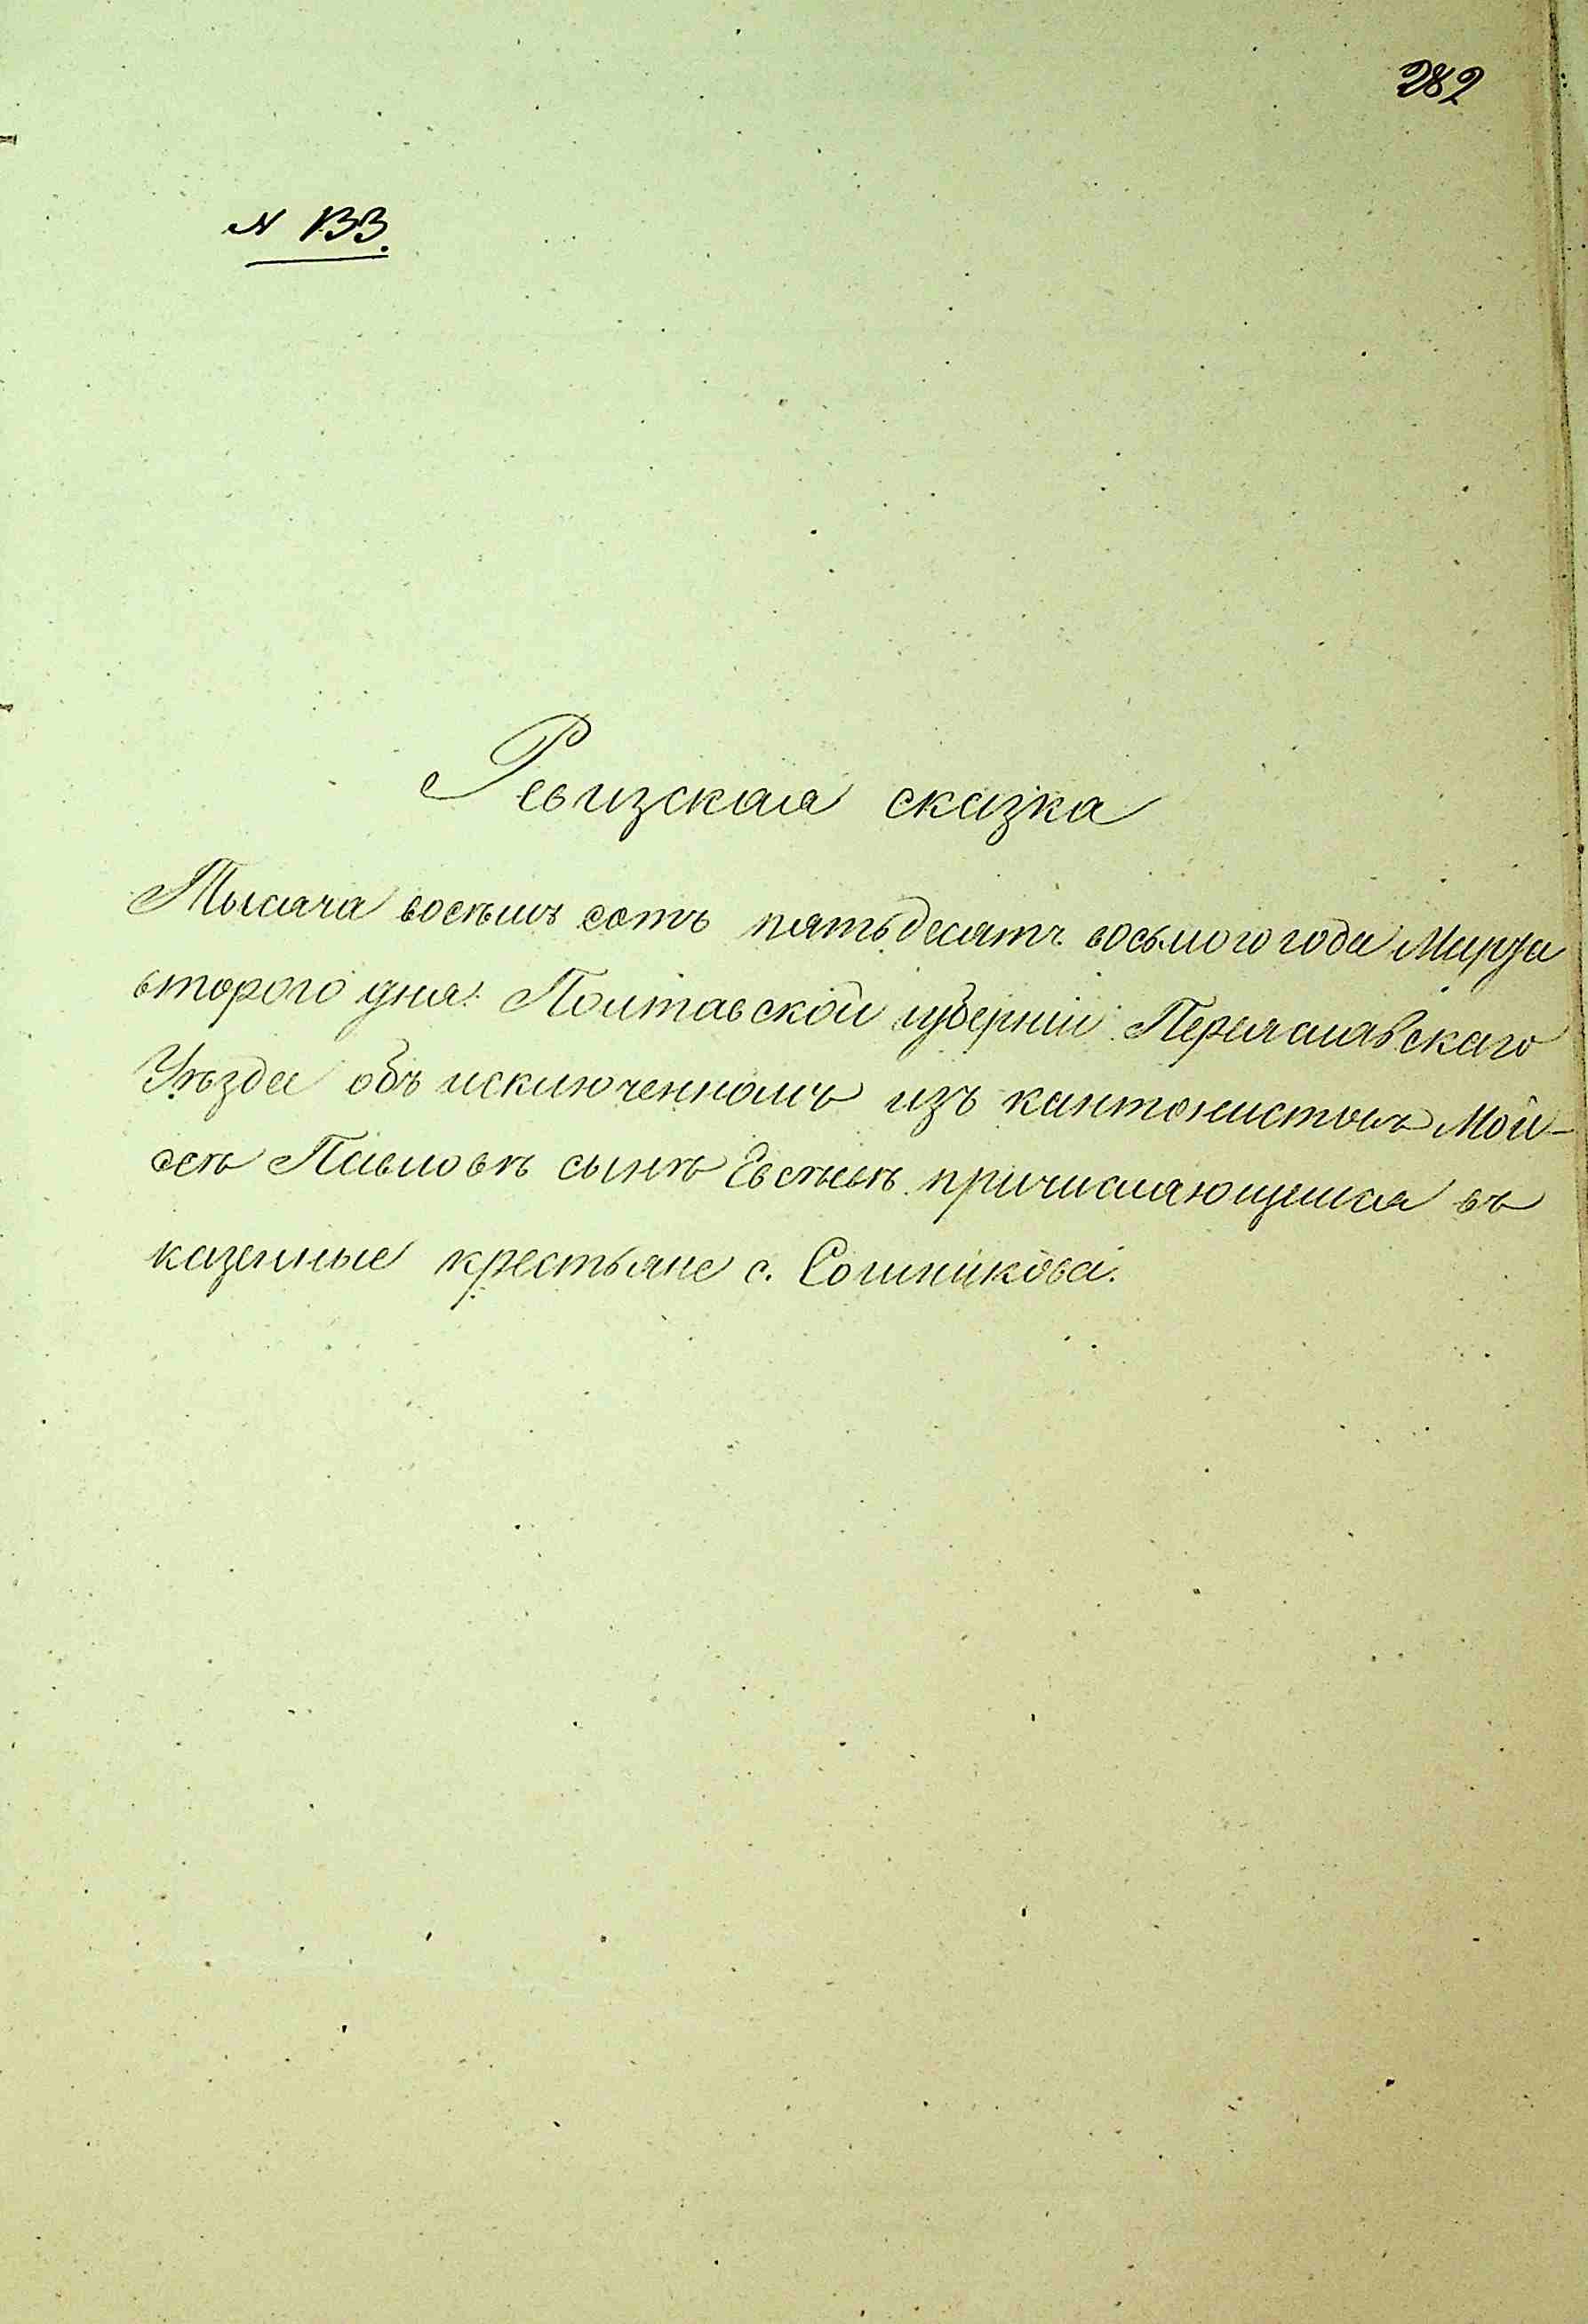 282
№ 133.
Ревизская сказка
Тысяча восемь сотъ пятьдесятъ восьмого года Марта
второго дня. Полтавской губерніи Переяславскаго
Уѣзда объ исключенномъ изъ кантонистовъ Мой-
сеѣ Павловѣ сынѣ причисляющимся въ
казенные крестьяне с. Сошникова.